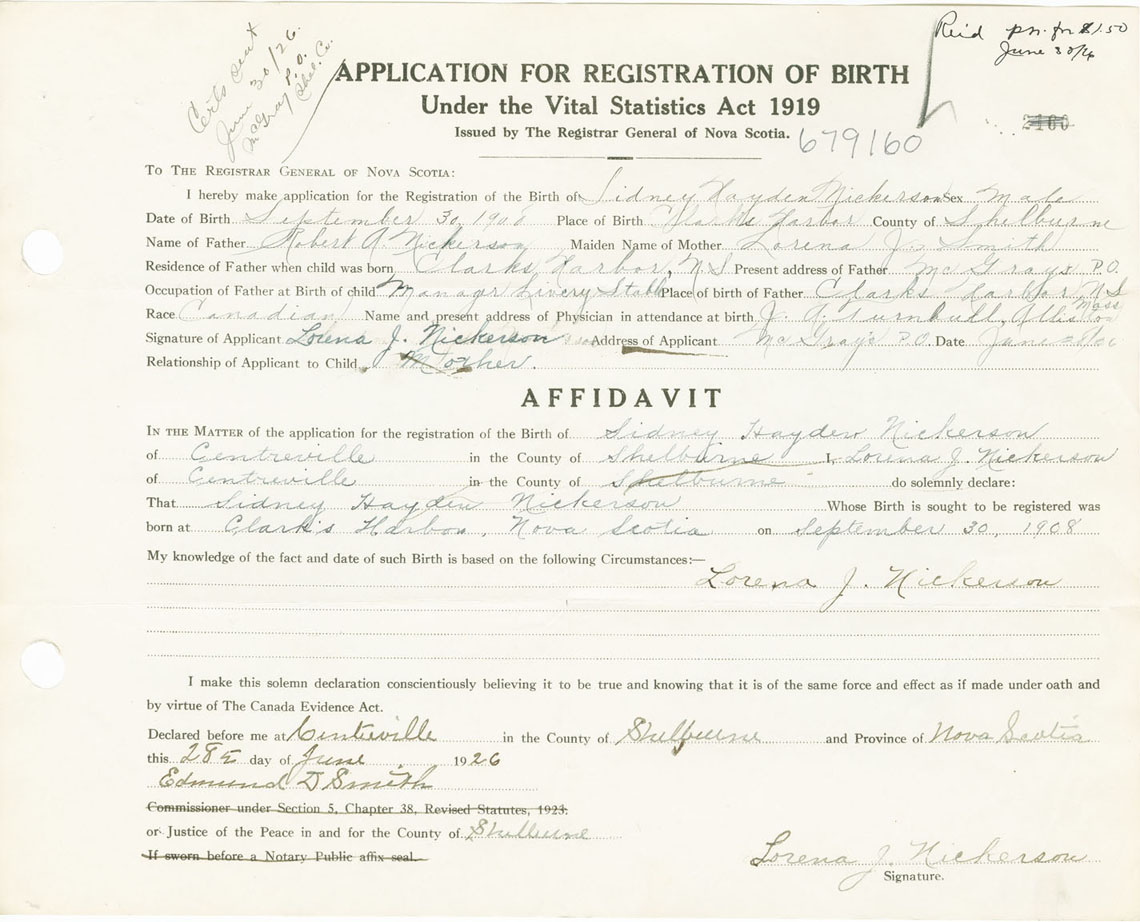 Certs sent
June 30/26.
McGray P.O.
Shel. Co.
pd. for $1.50
June 30/26
APPLICATION FOR REGISTRATION OF BIRTH
Under the Vital Statistics Act 1919
Issued by The Registrar General of Nova Scotia.
2460
679160
To The Registrar General of Nova Scotia:
I hereby make application for the Registration of the Birth of Sidney Hayden Nickerson Sex Male
Date of Birth September 30, 1908 Place of Birth Clarks Harbor County of Shelburne
Name of Father Robert A. Nickerson Maiden Name of Mother Lorena J. Smith
Residence of Father when child was born Clarks Harbor, N.S Present address of Father McGrays P.O.
Occupation of Father at Birth of child Manager Livery Stable Place of birth of Father Clarks Harbor, N.S
Race Canadian Name and present address of Physician in attendance at birth J. A. Turnbull, Allston Mass
Signature of Applicant Lorena J. Nickerson Address of Applicant McGray's P.O. Date June
Relationship of Applicant to Child Mother.
AFFIDAVIT
In the Matter of the application for the registration of the Birth of Sidney Hayden Nickerson
of Centreville in the County of Shelburne I, Lorena J. Nickerson
of Centreville in the County of Shelburne do solemnly declare:
That Sidney Hayden Nickerson Whose Birth is sought to be registered was
born at Clark's Harbor, Nova Scotia on September 30, 1908
My knowledge of the fact and date of such Birth is based on the following Circumstances:—
Lorena J. Nickerson
I make this solemn declaration conscientiously believing it to be true and knowing that it is of the same force and effect as if made under oath and
by virtue of The Canada Evidence Act.
Declared before me at Centreville in the County of Shelburne and Province of Nova Scotia
this 28th day of June 1926
Edmund D Smith
Commissioner under Section 5, Chapter 38, Revised Statutes, 1923.
or Justice of the Peace in and for the County of Shelburne
If sworn before a Notary Public affix seal.
Lorena J. Nickerson
Signature.